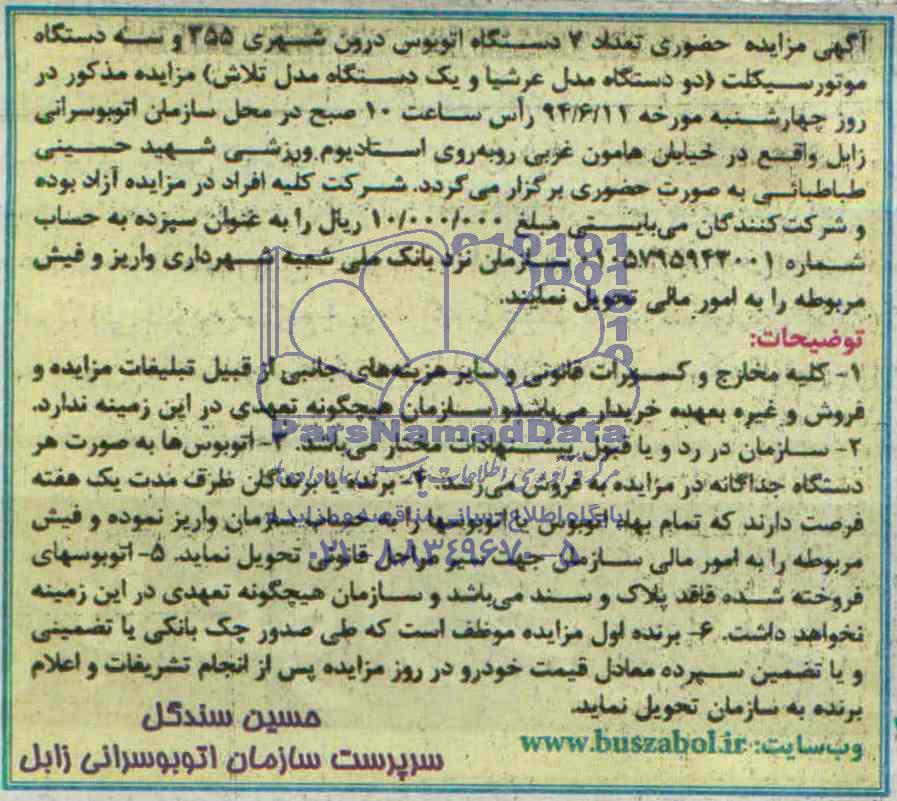 آگهی مزایده حضوری تعداد ۷ دستگاه اتوبوس درون شهری ۳۵۵ و سه دستگاه
موتورسیکلت (دو دستگاه مدل عرشیا و یک دستگاه مدل تلاش) مزایده مذکور در
روز چهارشنبه مورخه ۹۴/۶/۱۱ رأس ساعت ۱۰ صبح در محل سازمان اتوبوسرانی
زابل واقع در خیابان هامون غربی روبه‌روی استادیوم ورزشی شهید حسینی
طباطبائی به صورت حضوری برگزار می‌گردد. شرکت کلیه افراد در مزایده آزاد بوده
و شرکت‌کنندگان می‌بایستی مبلغ ۱۰/۰۰۰/۰۰۰ ریال را به عنوان سپرده به حساب
شماره سازمان نزد بانک ملی شعبه شهرداری واریز و فیش
مربوطه را به امور مالی تحویل نمایند.
توضیحات:
۱- کلیه مخارج و کسورات قانونی و سایر هزینه‌های جانبی از قبیل تبلیغات مزایده و
فروش و غیره بعهده خریدار می‌باشد و سازمان هیچگونه تعهدی در این زمینه ندارد.
۲- سازمان در رد و یا قبول پیشنهادات مختار می‌باشد. ۳- اتوبوس‌ها به صورت هر
دستگاه جداگانه در مزایده به فروش می‌رسد. ۴- برنده یا برندگان ظرف مدت یک هفته
فرصت دارند که تمام بهاء اتوبوس یا اتوبوسها را به حساب سازمان واریز نموده و فیش
مربوطه را به امور مالی سازمان جهت سیر مراحل قانونی تحویل نماید. ۵- اتوبوسهای
فروخته شده فاقد پلاک و سند می‌باشد و سازمان هیچگونه تعهدی در این زمینه
نخواهد داشت. ۶- برنده اول مزایده موظف است که طی صدور چک بانکی یا تضمینی
و یا تضمین سپرده معادل قیمت خودرو در روز مزایده پس از انجام تشریفات و اعلام
برنده به سازمان تحویل نماید.
وب‌سایت: www.buszabol.ir
حسین سندگل
سرپرست سازمان اتوبوسرانی زابل
ParsNamadData
پایگاه اطلاع رسانی مناقصه و مزایده
۰۲۱-۸۸۳۴۹۶۷۰-۵